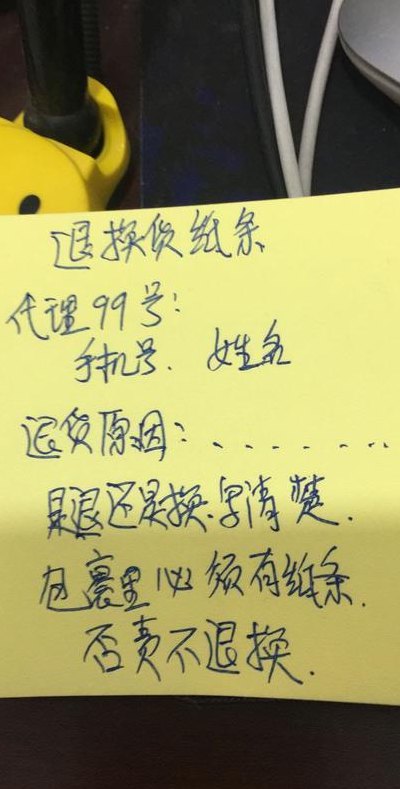 退换货纸条
代理99号:
手机号. 姓名
退货原因: . . . . . . .
是退还是换.写清楚.
包裹里必须有纸条.
否责不退换.